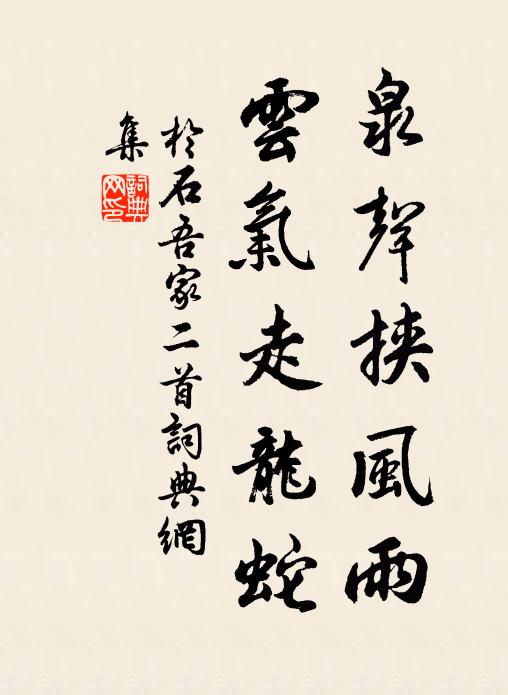 泉聲挾風雨
雲氣走龍蛇
於石吾家二首詞典網
集
詞典網印